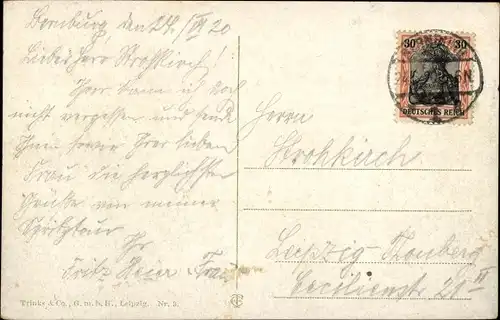 Bernburg, den 24./VI 20
Lieber Herr Strohkirch!
Ihrer kann ich noch
nicht vergessen und sende
Ihnen sowie Ihrer lieben
Frau die herzlichsten
Grüße von meiner
Spritztour
Ihr
Fritz Meier u. Frau
Trinks & Co., G. m. b. H., Leipzig. Nr. 3.
30 30
DEUTSCHES REICH
Herrn
Strohkirch
Leipzig-Thonberg
Cäcilienstr. 21 II